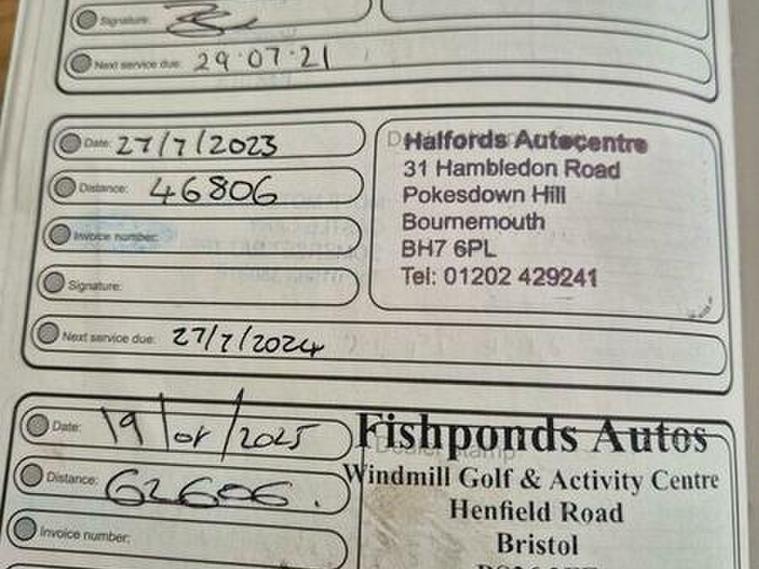 Signature:
Next service due: 29·07·21
Date: 27/7/2023
Distance: 46806
Invoice number:
Signature:
Next service due: 27/7/2024
Halfords Autocentre
31 Hambledon Road
Pokesdown Hill
Bournemouth
BH7 6PL
Tel: 01202 429241
Date: 19/ /2025
Distance: 62606.
Invoice number:
Fishponds Autos
Dealer stamp
Windmill Golf & Activity Centre
Henfield Road
Bristol